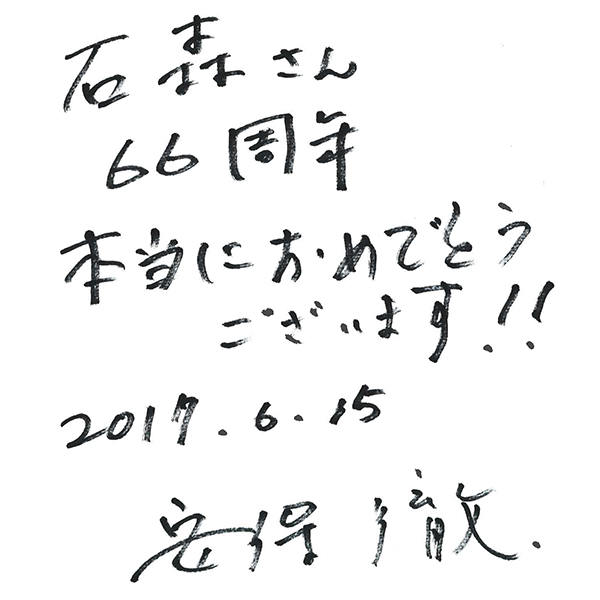 石森さん
66周年
本当におめでとう
ございます!!
2017.6.15
安保徹.